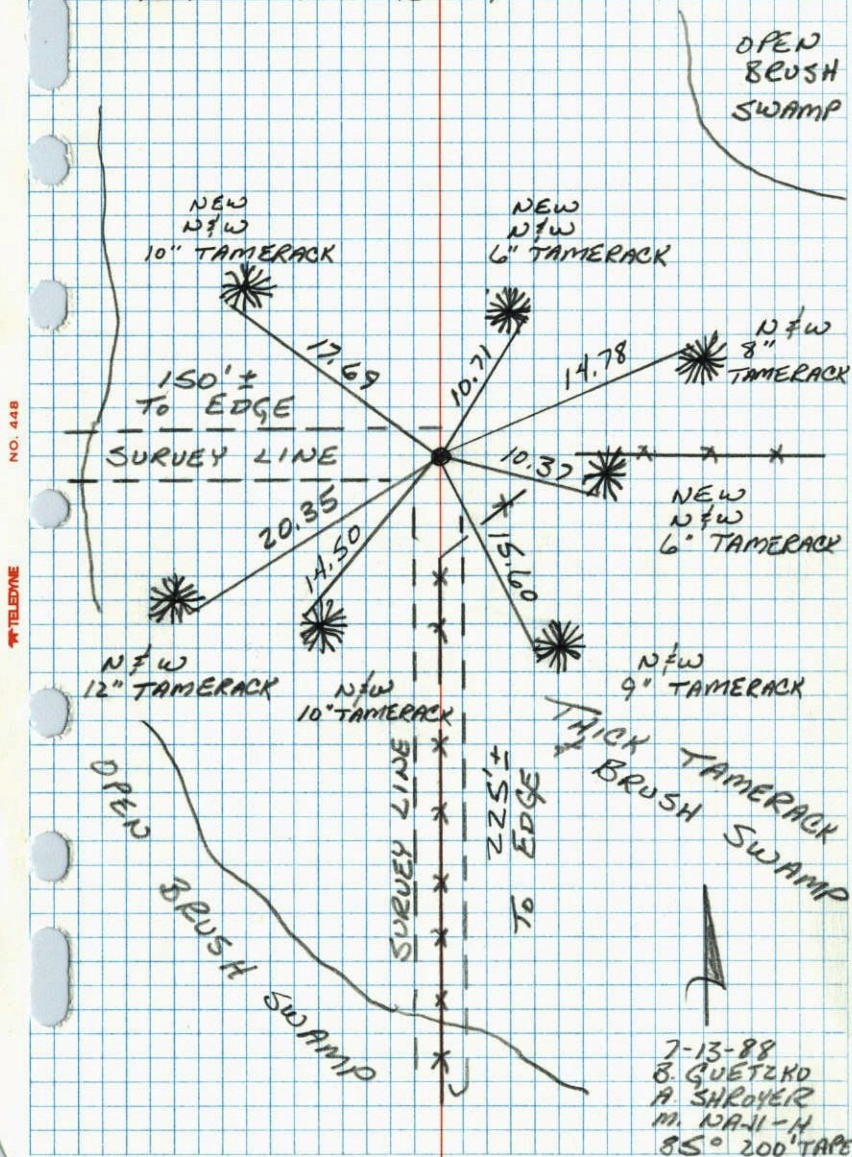 OPEN
BRUSH
SWAMP
NEW
N&W
10" TAMERACK
NEW
N&W
6" TAMERACK
N&W
8"
TAMERACK
17.69
10.71
14.78
150'±
TO EDGE
SURVEY LINE
10.37
NEW
N&W
6" TAMERACK
20.35
14.50
15.60
N&W
12" TAMERACK
N&W
10" TAMERACK
N&W
9" TAMERACK
THICK TAMERACK
& BRUSH SWAMP
OPEN
BRUSH SWAMP
SURVEY LINE
225'±
TO EDGE
7-13-88
B. GUETZKO
A. SHROYER
M.
85° 200' TAPE
NO. 448
TELEDYNE